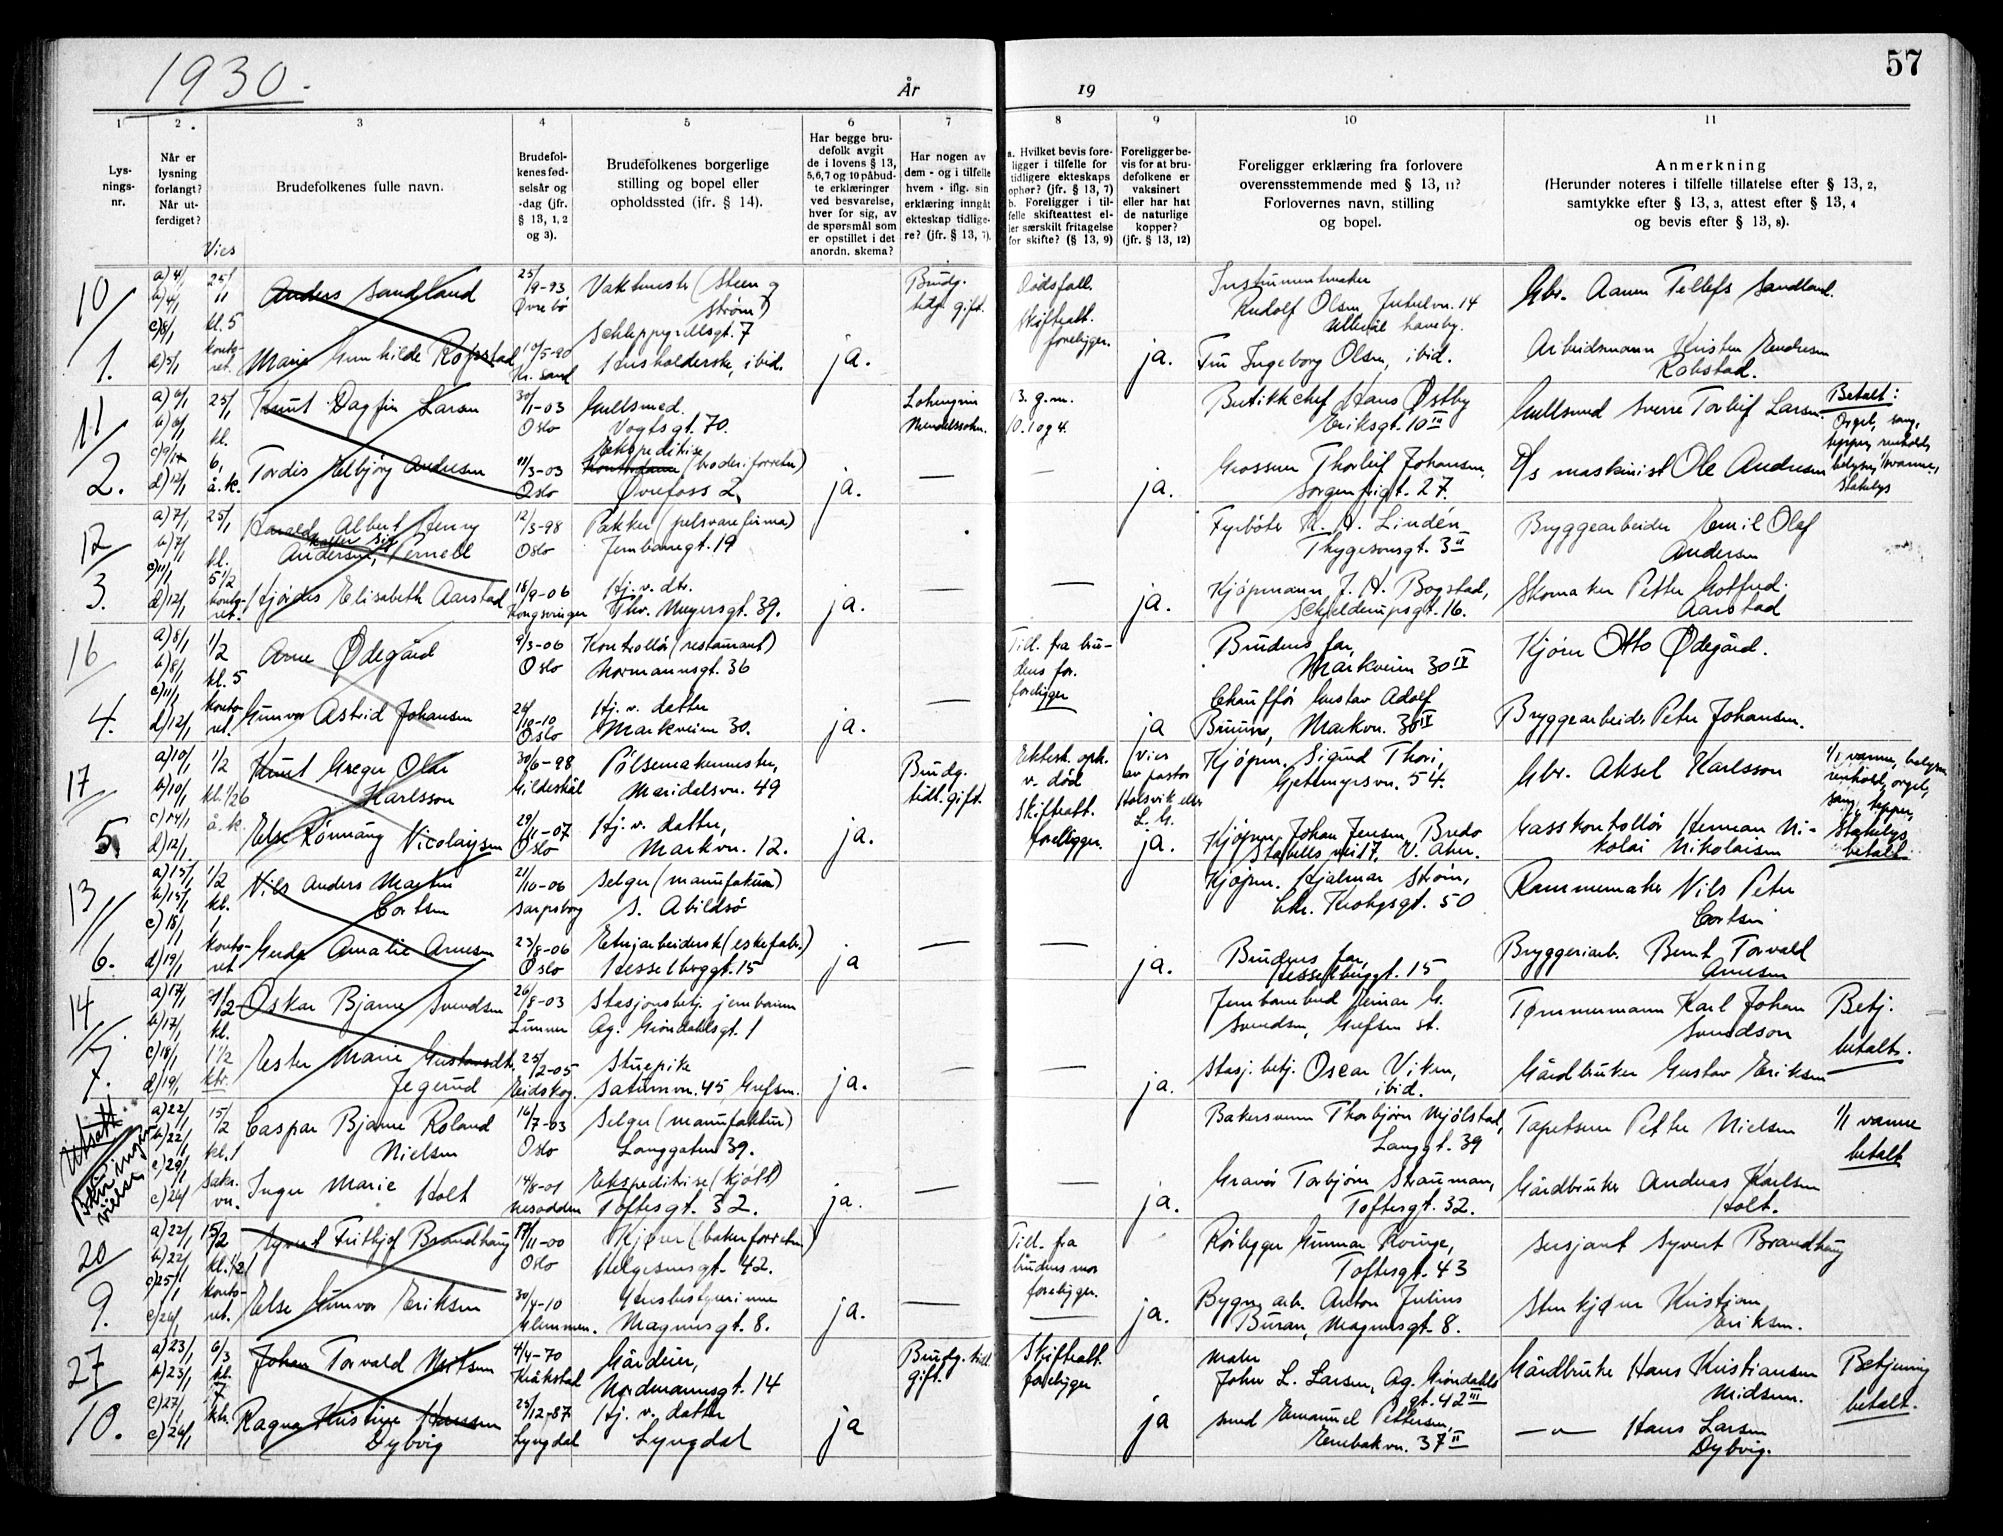 57
1930.
År
19
1 2 3 4 5 6 7 8 9 10 11
Lys-
nings-
nr.
Når er
lysning
forlangt?
Når ut-
ferdiget?
Brudefolkenes fulle navn.
Brudefol-
kenes fød-
selsår og
-dag (jfr.
§ 13, 1, 2
og 3).
Brudefolkenes borgerlige
stilling og bopel eller
opholdssted (ifr. § 14).
Har begge bru-
defolk avgit
de i lovens § 13,
5,6,7 og 10 påbud-
te erklæringer
ved besvarelse,
hver for sig, av
de spørsmål som
er opstillet i det
anordn. skema?
Har nogen av
dem - og i tilfelle
hvem - iflg. sin
erklæring inngåt
ekteskap tidlige-
re? (jfr. § 13, 7).
a. Hvilket bevis fore-
ligger i tilfelle for
tidligere ekteskaps
ophør? (jfr. § 13, 7)
b. Foreligger i til-
felle skifteattest el-
ler særskilt fritagelse
for skifte? (§ 13, 9)
Foreligger be-
vis for at bru-
defolkene er
vaksinert
eller har hat
de naturlige
kopper?
(jfr. § 13, 12)
Foreligger erklæring fra forlovere
overensstemmende med § 13, 11?
Forlovernes navn, stilling
og bopel.
Anmerkning
(Herunder noteres i tilfelle tillatelse efter § 13, 2,
samtykke efter § 13, 3, attest efter § 13, 4
og bevis efter § 13, 8).
Vies
10
a) 4/1
b) 4/1
c) 8/1
d) 5/1
25/1
kl. 5
konto-
ret.
Anders Sandland
25/9-93
Øvrebø
Vaktmester (Steen &
Strøm)
Schleppegrellsgt. 7
Brudg.
tidl. gift.
Dødsfall.
Skifteatt.
foreligger.
Instrumentmaker
Rudolf Olsen Jutulvn. 14
Ullevål haveby.
Gbr. Aanen Tellefs Sandland.
1.
Marie Gunhilde Robstad
10/5-90
Kr. Sand
Husholderske, ibid.
ja.
ja.
Fru Ingeborg Olsen, ibid.
Arbeidsmann Kristen Endresen
Robstad.
11
a) 6/1
b) 6/1
c) 9/1
d) 12/1
25/1
kl.
6.
å. k.
Knut Dagfin Larsen
30/1-03
Oslo
Gullsmed.
Vogtsgt. 70.
Lohengrin
Mendelssohn.
3. g.m.
10. 1 og 4.
Butikkchef Hans Østby
Eriksgt. 10 III
Gullsmed Sverre Torleif Larsen.
Betalt:
Orgel, sang,
tepper, renhold,
belysn., 1/1 varme,
Stakelys
2.
Tordis Elbjörg Andresen
11/3-03
Oslo
Ekspeditrise
(broderiforretn.)
Øvrefoss 2.
ja.
—
—
ja.
Grosserer Thorleif Johansen,
Sorgenfrigt. 27.
D/s maskinist Ole Andresen
12
a) 7/1
b) 7/1
c) 11/1
d) 12/1
25/1
kl.
5 1/2
kontor-
ret.
Harald Albert Henry
kaller sig
Andersen, Pernell
12/3-98
Oslo
Pakker (pelsvarefirma)
Jernbanegt. 19
Fyrbøter K. A. Lindén
Thygesonsgt. 3 II
Bryggearbeider Emil Olaf
Andersen
3.
Hjördis Elisabeth Aarstad
18/9-06
Kongsvinger
Hj. v. dtr.
Thv. Meyersgt. 39.
ja.
—
ja.
Kjøpmann J. H. Bogstad,
Schjelderupsgt. 16.
Skomaker Petter Gotfred
Aarstad
16
a) 8/1
b) 8/1
c) 11/1
d) 12/1
1/2
kl. 5
konto-
ret.
Arne Ødegård
9/3-06
Oslo
Kontrollör (restaurant)
Normannsgt. 36
Till. fra bru-
dens for.
foreligger
Brudens far,
Markveien 30 IV
Kjører Otto Ødegård.
4.
Gunvor Astrid Johansen
26/10-10
Oslo
Hj. v. datter
Markveien 30.
ja.
—
ja
Chauffør Gustav Adolf
Bruun, Markvn. 30 IV
Bryggearbeider Peter Johansen.
17
a) 10/1
b) 10/1
c) 14/1
d) 12/1
1/2
kl. 1/2 6
å. k.
Knut Greger Olav
Karlsson
30/6-98
Gildeskål
Pølsemakermester,
Maridalsvn. 49
Brudg.
tidl. gift.
Ektesk. oph.
v. død
Skifteatt.
foreligger.
(vies
av pastor
Horsvik eller
L. G.
Kjøpm. Sigurd Thori,
Gjetemyrsvn. 54.
Gbr. Aksel Karlsson
1/1, varme, belysn.
renhold, orgel,
sang, tepper,
Stakelys
betalt
5.
Else Rönnäng Nicolaysen
29/11-07
Oslo
Hj. v. datter,
Markvn. 12.
ja.
ja.
Kjøpm. Johan Jensen, Bredo
Stabells vei 17. V. Aker.
Gasskontrollör Herman Ni-
kolai Nikolaisen
13
a) 15/1
b) 15/1
c) 18/1
d) 19/1
1/2
kl.
konto-
ret
Nils Anders Martin
Cortsen
21/10-06
Sarpsborg
Selger (manufaktur)
S. Abildsö
Kjøpm. Hjalmar Strøm,
Chr. Krohgsgt. 50
Rammemaker Nils Peter
Cortsen
6.
Gerda Amalie Arnesen
23/8-06
Oslo
Etuiarbeiderske (eskefabr.)
Hesselbergsgt. 15
ja
—
—
ja.
Brudens far,
Hesselbergsgt. 15
Bryggeriarb. Bernt Torvald
Arnesen
14
a) 17/1
b) 17/1
c) 18/1
d) 19/1
1/2
kl.
1 1/2
ktr.
Oskar Bjarne Svendsen
26/8-03
Lunner
Stasjonsbetj. jernbanen
Ag. Gröndahlsgt. 1
Jernbanebud Einar G.
Svendsen, Grefsen st.
Tømmermann Karl Johan
Svendson
Betj.
betalt.
7.
Ester Marie Gustavsdtr.
Jegerud
25/2-05
Eidskog.
Stuepike
Saturnvn. 45 Grefsen.
ja.
—
—
ja.
Stasj. betj. Oscar Viken,
ibid.
Gårdbruker Gustav Eriksen
Utsatt
Blir ingen
vielse
a) 22/1
b) 22/1
c) 29/1
c) 24/1
15/2
kl. 1
Sakr.
vn.
Caspar Bjarne Roland
Nielsen
16/7-03
Oslo
Selger (manufaktur)
Langgaten 39.
Bakersvenn Thorbjørn Mjölstad,
Langgt. 39
Tapetserer Petter Nielsen
1/1 varme
betalt
Inger Marie Holt
14/8-01
Nesodden
Ekspeditrise (kjøtt)
Toftesgt. 32.
ja.
—
—
ja.
Gravør Torbjörn Strauman,
Toftesgt. 32.
Gårdbruker Andreas Karlsen
Holt.
20
a) 22/1
b) 22/1
c) 25/1
c) 24/1
15/2
kl. 1/2 1
konto-
ret.
Syvert Frithjof Brandhaug
17/11-00
Oslo
Kjører (bakerforretn.)
Helgesensgt. 42.
Till. fra
brudens mor
foreligger.
Rörlegger Gunnar Kvinge,
Toftesgt. 43
Sersjant Syvert Brandhaug
9.
Else Gunvor Eriksen
30/4-10
Glemmen.
Husbestyrerinne
Magnusgt. 8.
ja.
—
—
ja.
Bygn. arb. Anton Julius
Buran, Magnusgt. 8.
Stenkjører Kristian
Eriksen.
27
a) 23/1
b) 23/1
c) 27/1
c) 24/1
6/3
kl.
7
ktr.
Johan Torvald
4/4-70
Kråkstad
Gårdeier,
Nordmannsgt. 14
Brudg. tidl.
gift.
Skifteatt.
foreligger
Maler
John L. Larsen, Ag. Gröndahls
gt. 42 III
Gårdbruker Hans Kristiansen
Midsen.
Betjening
betalt.
10.
Ragna Kristine Hansen
Dybvig
25/12-87
Lyngdal
Hj. v. datter
Lyngdal
ja
ja
Smed Emanuel Pettersen,
Enebakvn. 37 II
—"— Hans Larsen
Dybvig.